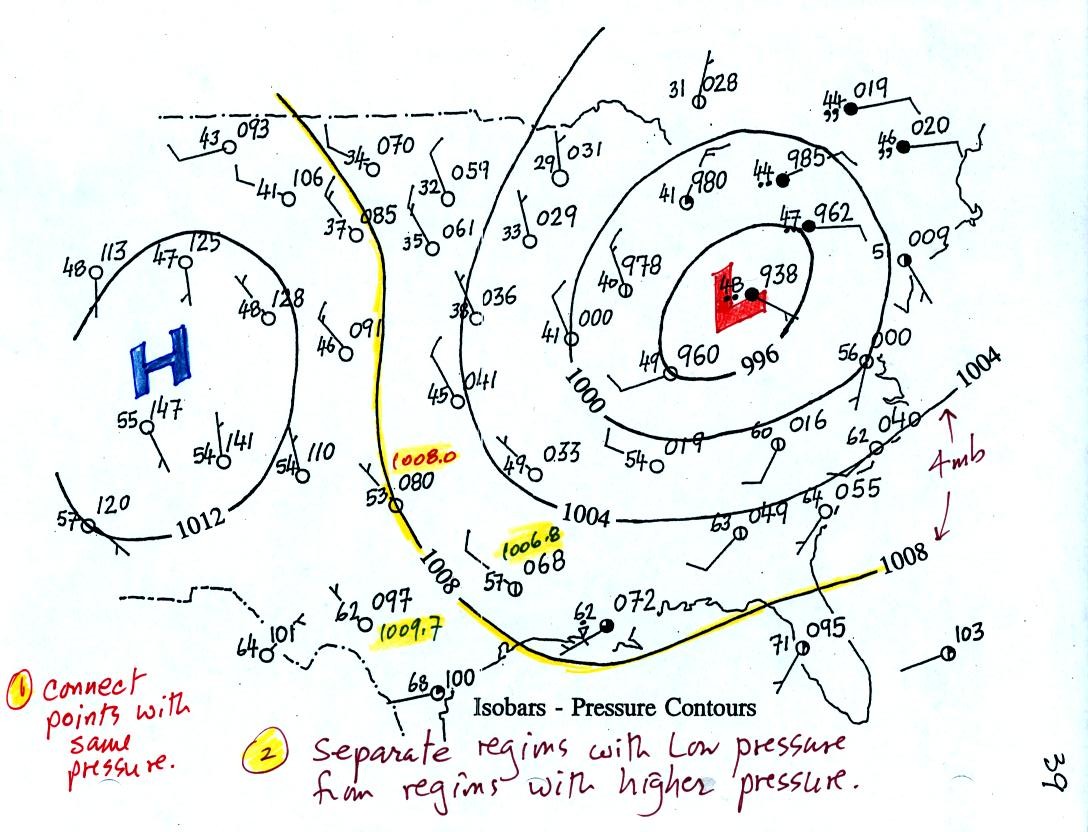 31 028
44 019
46 020
43 093
34 070
32 059
29 031
41 980
44 985
41 106
37 085
35 061
33 029
47 962
5 009
48 113
47 125
48 128
40 978
48 938
L
38 036
41 000
46 091
H
49 960
996
56 000
1004
1000
45 041
55 147
54 141
54 110
49 033
54 019
60 016
62 040
4mb
1008.0
53 080
57 120
1012
1004
63 049
64 055
1008
1006.8
57 068
1008
62 097
1009.7
62 072
64 101
71 095
103
68 100
Isobars - Pressure Contours
1 Connect
points with
same
pressure.
2 Separate regims with Low pressure
from regims with higher pressure.
39